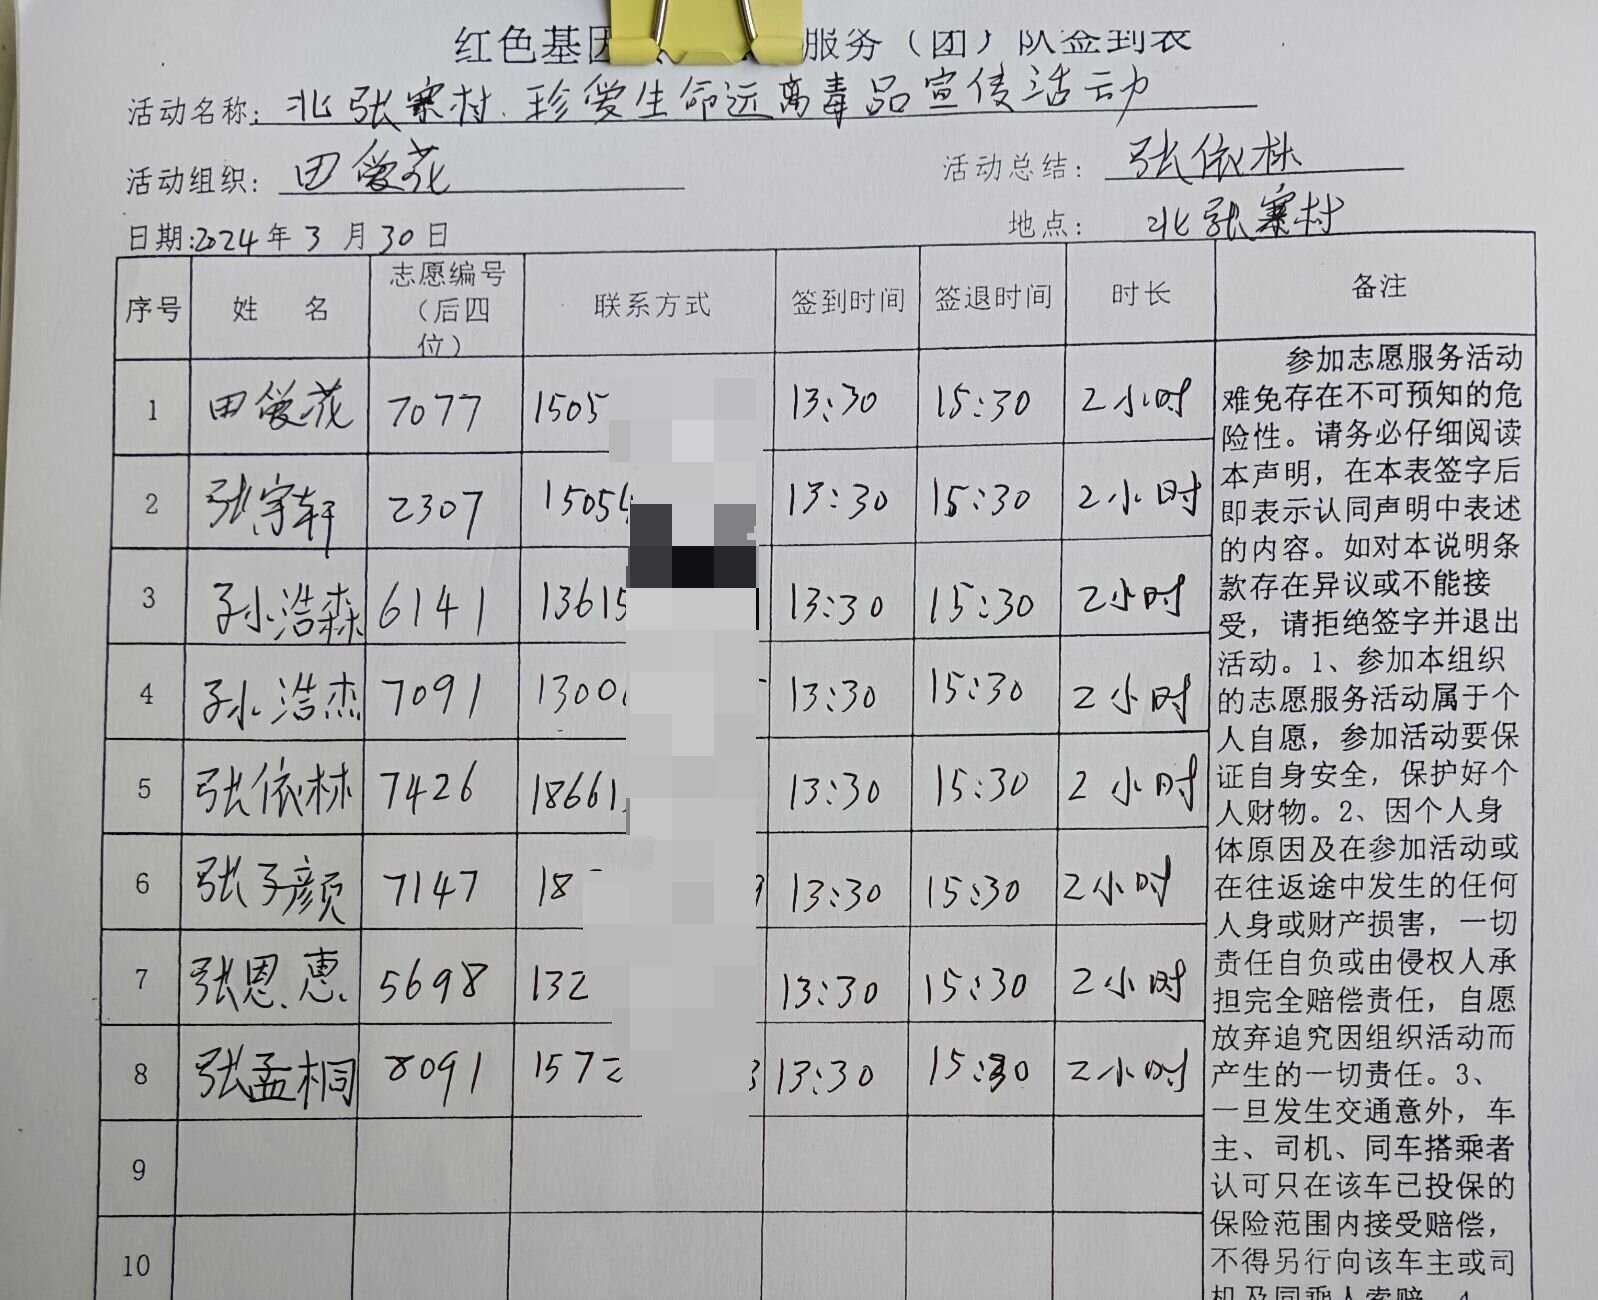 红色基因 服务（团）队签到表
活动名称：北张寨村.珍爱生命远离毒品宣传活动
活动组织：田爱花 活动总结：张依林
日期:2024年3月30日 地点：北张寨村
序号 姓 名 志愿编号（后四位） 联系方式 签到时间 签退时间 时长 备注
1 田爱花 7077 1505 13:30 15:30 2小时
2 张宇轩 2307 1505 13:30 15:30 2小时
3 孙浩森 6141 13615 13:30 15:30 2小时
4 孙浩杰 7091 1300 13:30 15:30 2小时
5 张依林 7426 18661 13:30 15:30 2小时
6 张子颜 7147 18 13:30 15:30 2小时
7 张恩惠 5698 132 13:30 15:30 2小时
8 张孟桐 8091 157 3 13:30 15:30 2小时
9
10
参加志愿服务活动
难免存在不可预知的危
险性。请务必仔细阅读
本声明，在本表签字后
即表示认同声明中表述
的内容。如对本说明条
款存在异议或不能接
受，请拒绝签字并退出
活动。1、参加本组织
的志愿服务活动属于个
人自愿，参加活动要保
证自身安全，保护好个
人财物。2、因个人身
体原因及在参加活动或
在往返途中发生的任何
人身或财产损害，一切
责任自负或由侵权人承
担完全赔偿责任，自愿
放弃追究因组织活动而
产生的一切责任。3、
一旦发生交通意外，车
主、司机、同车搭乘者
认可只在该车已投保的
保险范围内接受赔偿，
不得另行向该车主或司
机及同乘人索赔。4、